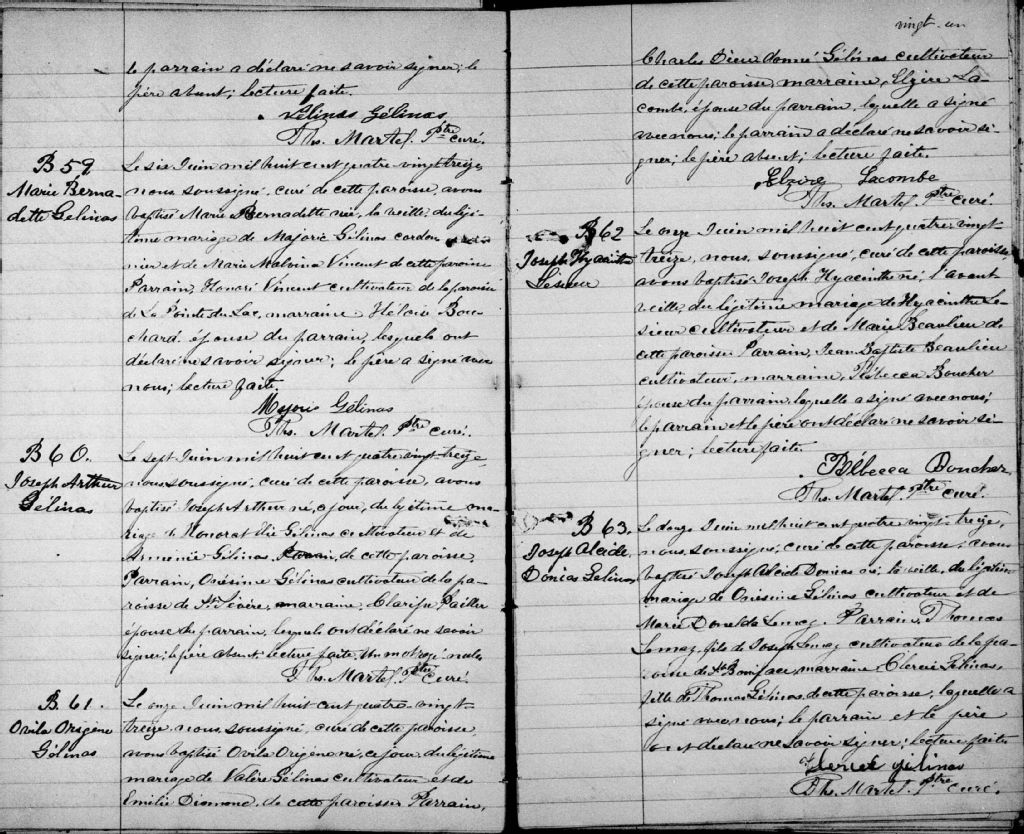 le parrain a déclaré ne savoir signer; le
père absent; lecture faite.
Lélinas Gélinas
Ths. Martel. Ptre curé.
B 59
Marie Berna-
dette Gélinas
Le six Juin mil huit cent quatre vingt treize,
nous soussigné, curé de cette paroisse, avons
baptisé Marie Bernadette née, la veille, du légi-
time mariage de Majoric Gélinas cordon
nier et de Marie Malvina Vincent de cette paroisse
Parrain, Honoré Vincent cultivateur de la paroisse
de La Pointe du Lac, marraine Héloïse Bou-
chard épouse du parrain, lesquels ont
déclaré ne savoir signer; le père a signé avec
nous; lecture faite.
Majoric Gélinas
Ths. Martel. Ptre curé.
B 60.
Joseph Arthur
Gélinas
Le sept Juin mil huit cent quatre vingt-treize,
nous soussigné, curé de cette paroisse, avons
baptisé Joseph Arthur né, ce jour, du légitime ma-
riage d' Honorat Elie Gélinas cultivateur et de
Arménie Gélinas de cette paroisse.
Parrain, Onésime Gélinas cultivateur de la pa-
roisse de St. Sévère, marraine, Clarisse Paillé
épouse du parrain, lesquels ont déclaré ne savoir
signer; le père absent; lecture faite. Un mot rayé nul.
Ths. Martel Ptre curé
B. 61.
Ovila Origène
Gélinas
Le onze Juin mil huit cent quatre-vingt-
treize, nous, soussigné, curé de cette paroisse,
avons baptisé Ovila Origène né, ce jour, du légitime
mariage de Valère Gélinas cultivateur et de
Emilie Diamond, de cette paroisse. Parrain,
vingt-un
Charles Dieudonné Gélinas cultivateur
de cette paroisse, marraine, Elzire La-
combe, épouse du parrain, laquelle a signé
avec nous; le parrain a déclaré ne savoir si-
gner; le père absent; lecture faite.
Elzire Lacombe
Ths. Martel. Ptre curé.
B 62
Joseph Hyacinthe
Lesieur
Le onze Juin mil huit cent quatre vingt
treize, nous, soussigné, curé de cette paroisse
avons baptisé Joseph Hyacinthe né, l'avant
veille, du légitime mariage de Hyacinthe Le-
sieur cultivateur et de Marie Beaulieu de
cette paroisse. Parrain, Jean Baptiste Beaulieu
cultivateur, marraine, Rébecca Boucher
épouse du parrain, laquelle a signé avec nous;
le parrain et le père ont déclaré ne savoir si-
gner; lecture faite.
Rébecca Boucher
Ths. Martel. Ptre curé.
B 63.
Joseph Alcide
Donias Gélinas
Le douze Juin mil huit cent quatre vingt-treize,
nous, soussigné, curé de cette paroisse, avons
baptisé Joseph Alcide Donias né, la veille, du légitime
mariage de Onésime Gélinas cultivateur et de
Marie Donalda Lemay. Parrain, Thomas
Lemay, fils de Joseph Lemay cultivateur de la pa-
roisse de St. Boniface, marraine, Clercie Gélinas,
fille de Thomas Gélinas, de cette paroisse, laquelle a
signé avec nous; le parrain et le père
ont déclaré ne savoir signer; lecture faite
Gélinas
Ths. Martel. Ptre curé.